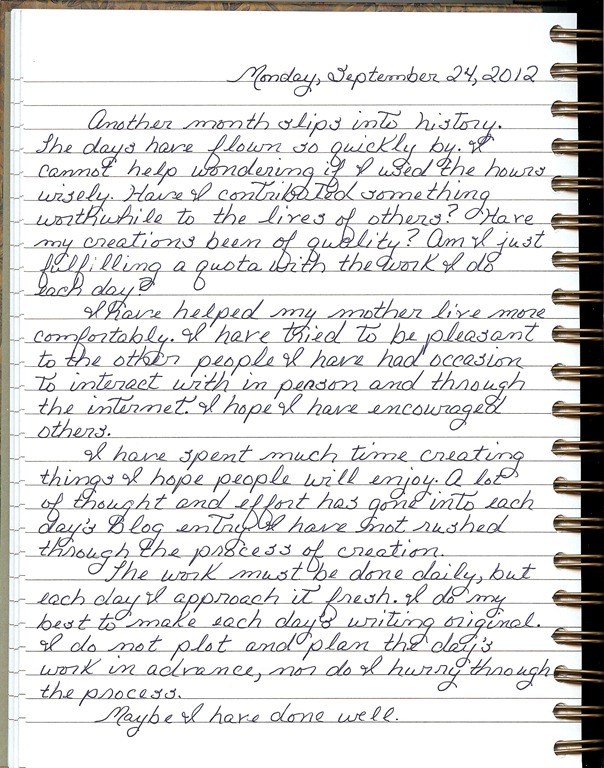 Monday, September 24, 2012
Another month slips into history.
The days have flown so quickly by. I
cannot help wondering if I used the hours
wisely. Have I contributed something
worthwhile to the lives of others? Have
my creations been of quality? Am I just
fulfilling a quota with the work I do
each day?
I have helped my mother live more
comfortably. I have tried to be pleasant
to the other people I have had occasion
to interact with in person and through
the internet. I hope I have encouraged
others.
I have spent much time creating
things I hope people will enjoy. A lot
of thought and effort has gone into each
day's Blog entry. I have not rushed
through the process of creation.
The work must be done daily, but
each day I approach it fresh. I do my
best to make each day's writing original.
I do not plot and plan the day's
work in advance, nor do I hurry through
the process.
Maybe I have done well.